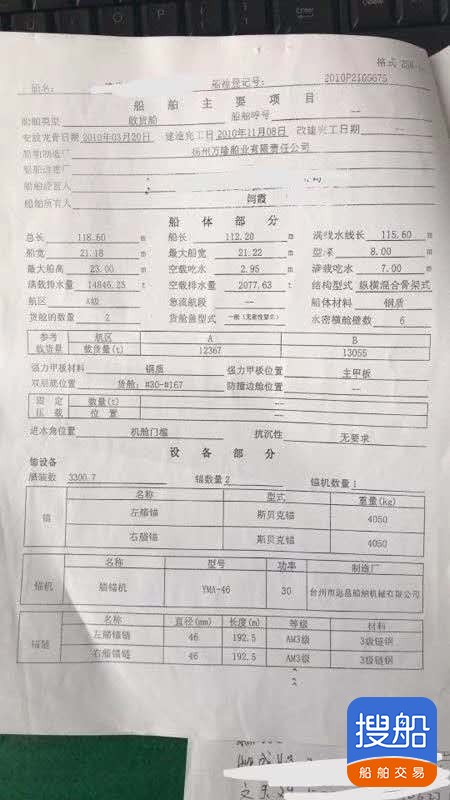 格式
船名: 船检登记号: 2010P2105675
船舶主要项目
船舶类型 散货船 船舶呼号 —
安放龙骨日期 2010年03月20日 建造完工日 2010年11月08日 改建完工日期 —
船舶制造厂 扬州万隆船业有限责任公司
船舶改建厂
船舶经营人
船舶所有人 闾霞
船体部分
总长 118.60 m 船长 112.20 m 满载水线长 115.60 m
船宽 21.18 m 最大船宽 21.22 m 型深 8.00 m
最大船高 23.00 m 空载吃水 2.95 m 满载吃水 7.00 m
满载排水量 14846.25 t 空载排水量 2077.63 t 结构型式 纵横混合骨架式
航区 A级 急流航段 — 船体材料 钢质
货舱的数量 2 货舱盖型式 水密横舱壁数 6
参考 航区 A B
载货量 载货量(t) 12367 13055
强力甲板材料 钢质 强力甲板位置 主甲板
双层底位置 货舱: #30-#167 防撞边舱位置 —
固定 数量(t) —
压载 位置 —
进水角位置 机舱门槛 抗沉性 无要求
设备部分
锚设备
舾装数 3300.7 锚数量 2 锚机数量 1
名称 型式 重量(kg)
锚 左艏锚 斯贝克锚 4050
右艏锚 斯贝克锚 4050
名称 型号 功率 制造厂
锚机 艏锚机 YMA-46 30 台州市远昌船舶机械有限公司
名称 直径(mm) 长度(m) 等级 材料
锚链 左艏锚链 46 192.5 AM3级 3级链钢
右艏锚链 46 192.5 AM3级 3级链钢
搜船
船舶交易